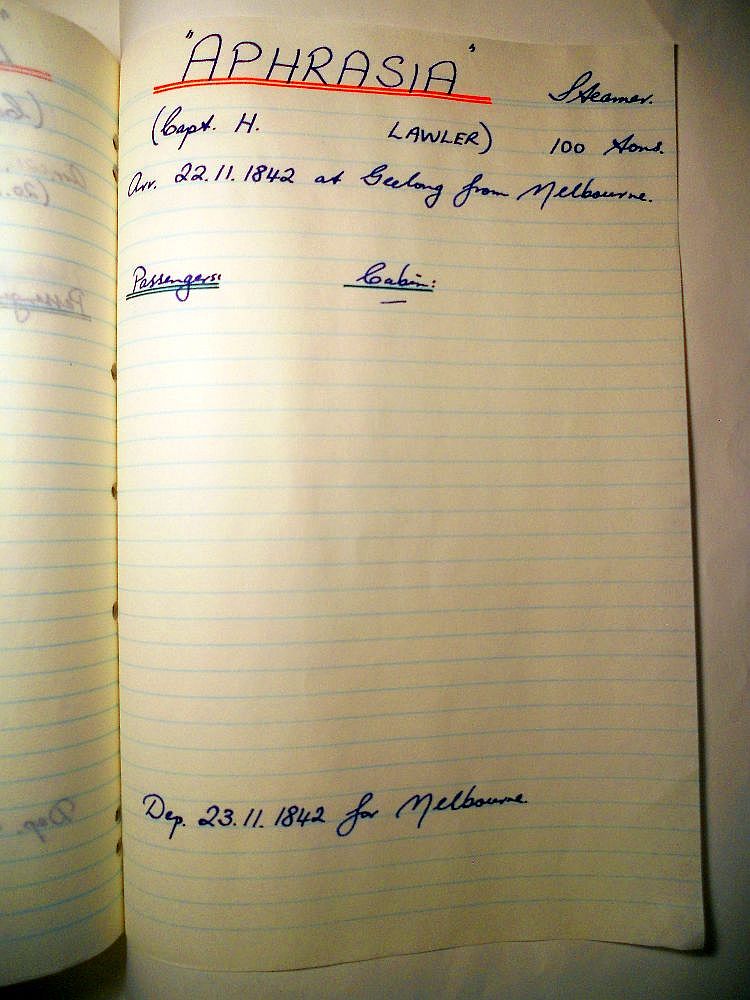 "APHRASIA" Steamer.
(Capt. H. LAWLER) 100 tons.
Arr. 22.11.1842 at Geelong from Melbourne.
Passengers: Cabin:
—
Dep. 23.11.1842 for Melbourne.